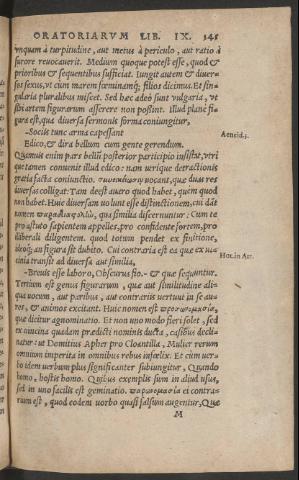 ORATORIARVM LIB. IX. 345
vnquam à turpitudine, aut metus à periculo, aut ratio à
furore reuocauerit. Medium quoque potest esse, quod &
prioribus & sequentibus sufficiat. Iungit autem & diuer-
sos sexus, vt cum marem fœminamq; filios dicimus. Et sin-
gularia pluralibus miscet. Sed hæc adeò sunt vulgaria, vt
sibi artem figurarum asserere non possint. Illud planè fi-
gura est, qua diuersa sermonis forma coniungitur,
-Socijs tunc arma capessant Aeneid.3.
Edico, & dira bellum cum gente gerendum.
Quamuis enim pars bellis posterior participio insistat, vtri
que tamen conuenit illud edico: nam utrique detractionis
gratia facta coniunctio. vocant, quæ duas res
diuersas colligat: Tam deest auaro quod habet, quàm quod
non habet. Huic diuersam uolunt esse distinctionem, cui dāt
nomen qua similia discernuntur: Cùm te
pro astuto sapientem appelles, pro confidente fortem, pro
illiberali diligentem. quod totum pendet ex finitione,
ideoq; an figura sit dubito. Cui contraria est ea quæ ex ui-
cinia transit ad diuersa aut similia, Hor. in Art.
-Breuis esse laboro, Obscurus fio.- & quæ sequuntur.
Tertium est genus figurarum, quæ aut similitudine ali-
qua uocum, aut paribus, aut contrarijs uertunt in se au-
res, & animos excitant. Huic nomen est παρονομασία,
quæ dicitur agnominatio. Et ea non uno modo fieri solet, sed
ex uicinia quadam prædicti nominis ducta, casibus decli-
natur: ut Domitius Apher pro Cloantilla, Mulier rerum
omnium imperita in omnibus rebus infœlix. Et cùm uer-
bo idem uerbum plus significanter subiungitur, Quando
homo, hostis homo. Quibus exemplis sum in aliud usus,
sed in uno facilis est geminatio. παρονομασία ei contra-
rum est, quod eodem uerbo quasi falsum augentur, Quæ
M